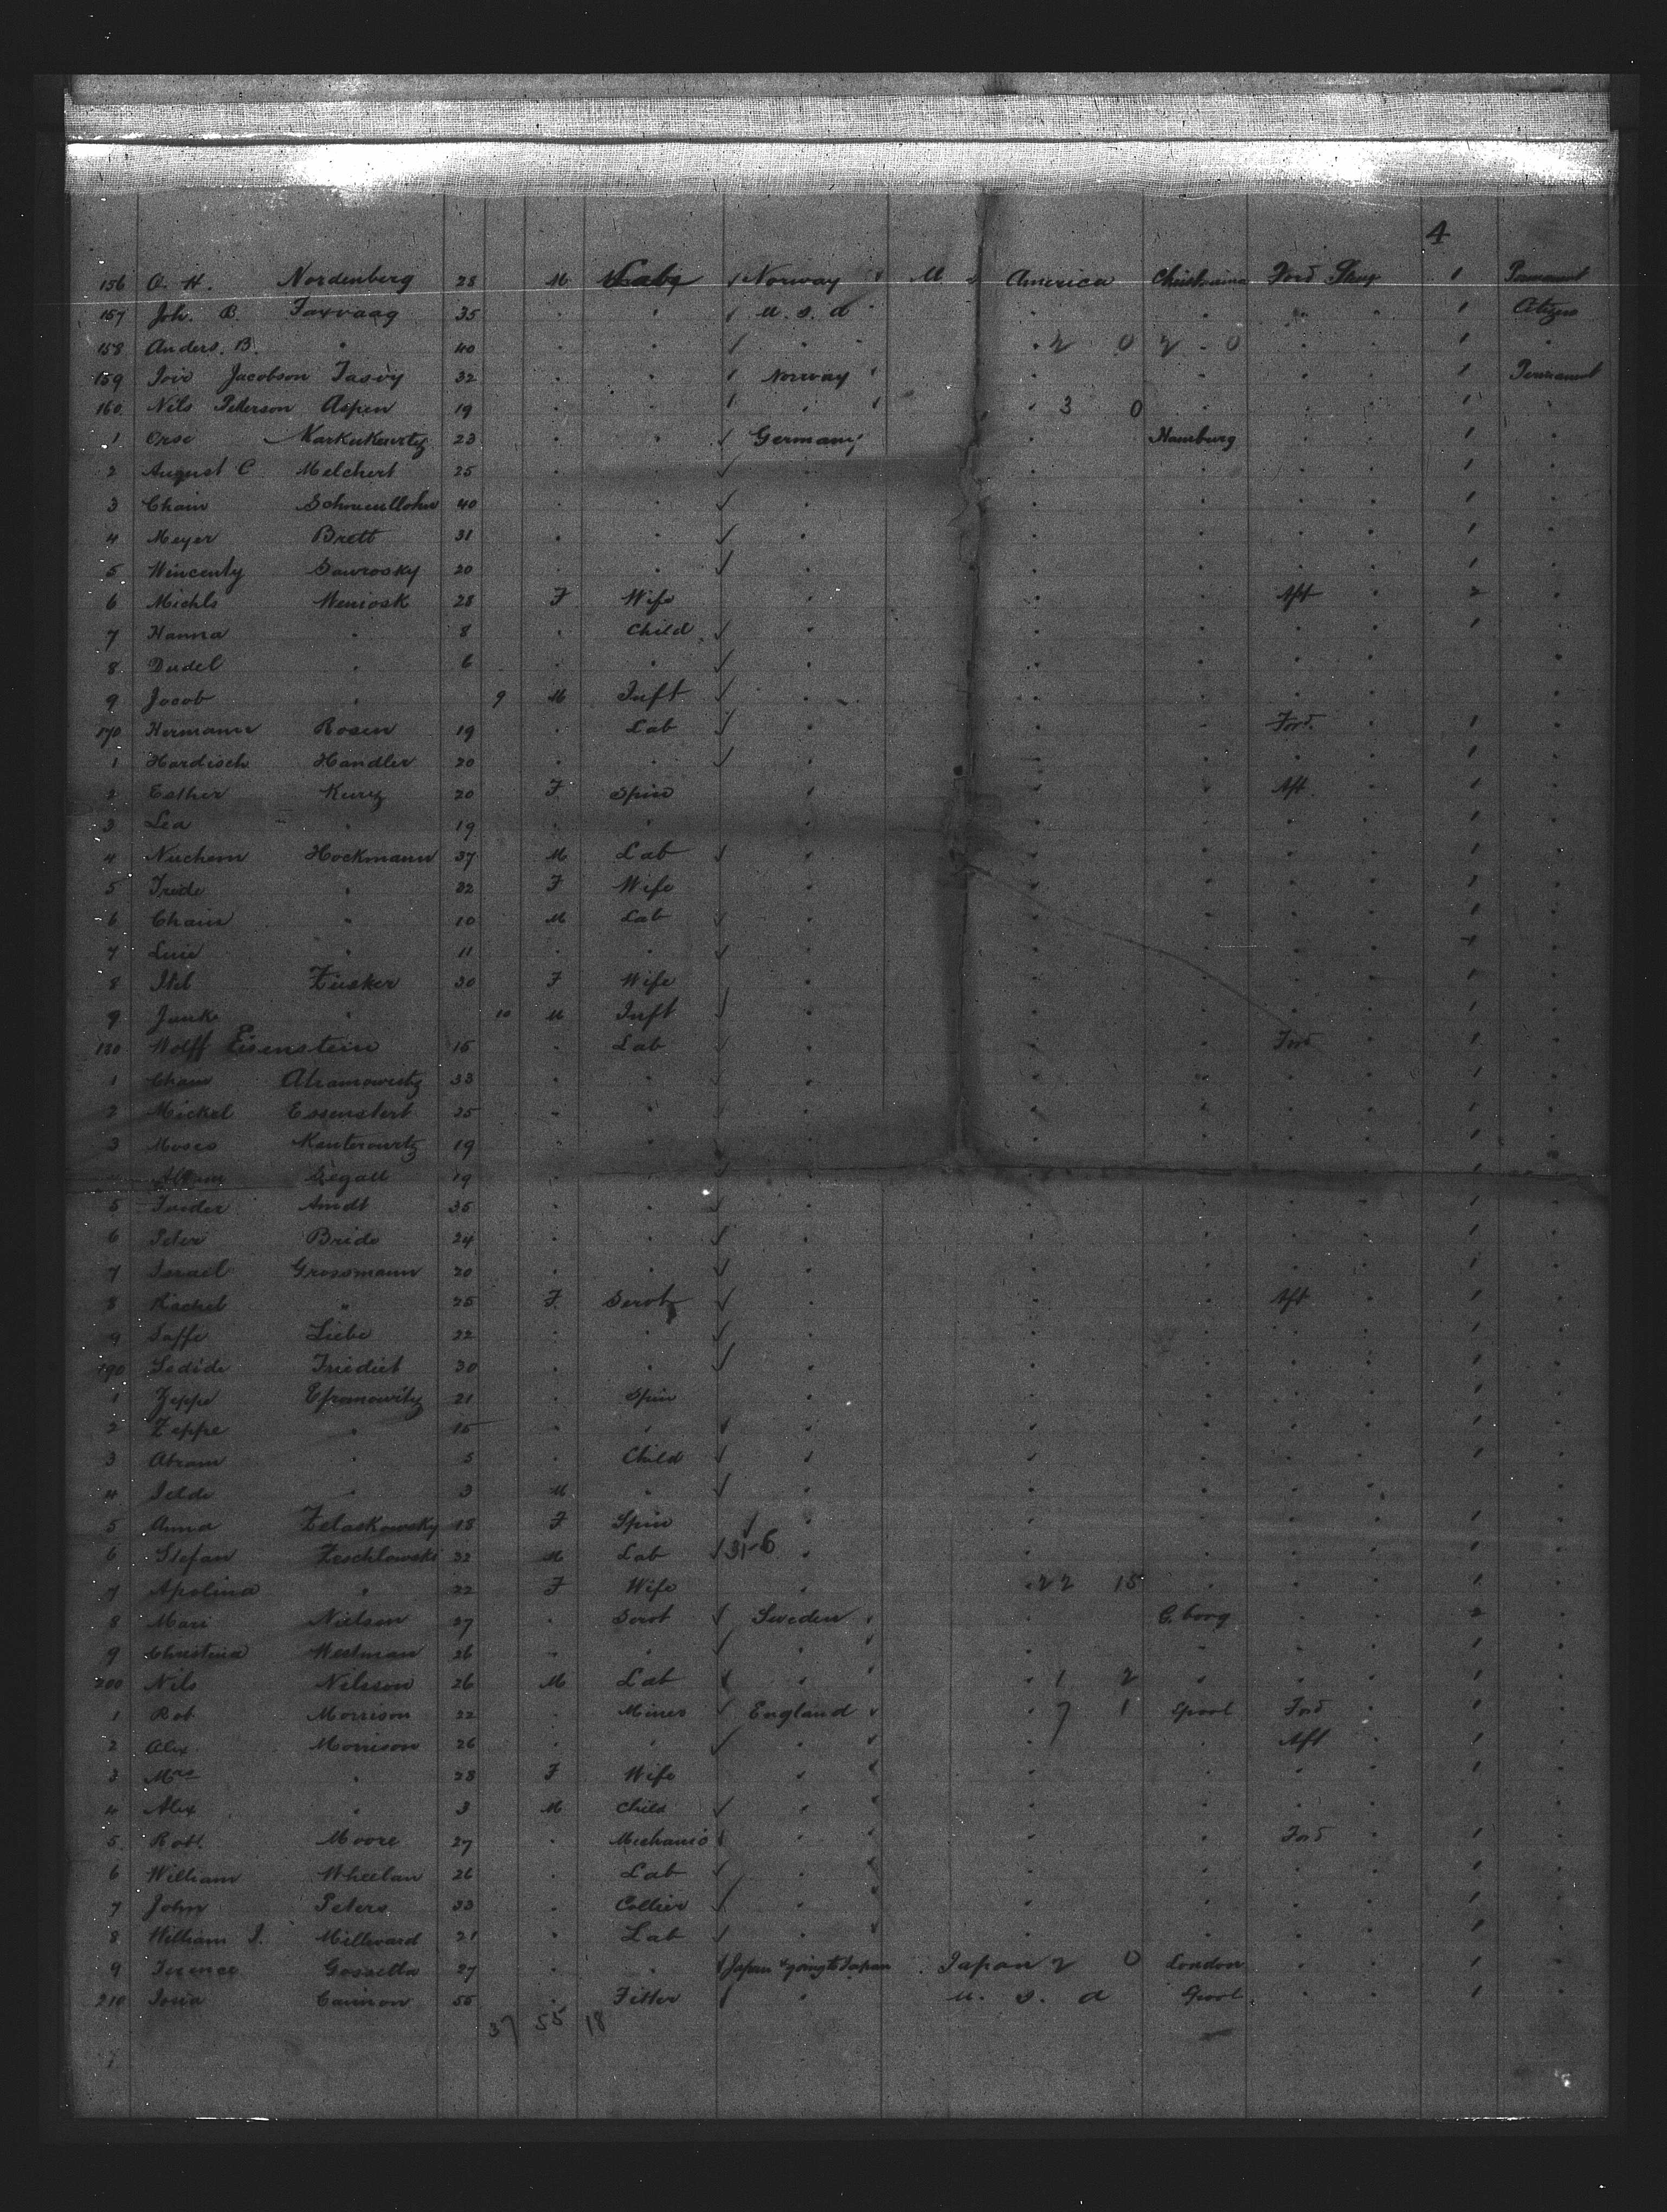 4
156 O. H. Nordenberg 28 M Labr Norway M America Christiania Ford Strge 1 Permanent
157 Joh. B. Faxvaag 35 " " U.S.A " " " " 1 Citizen
158 Anders. B. " 40 " " " " " 2 0 2 0 " " 1 "
159 Jacobson 32 " " Norway " " " " 1 Permanent
160 Nils Peterson Aspen 19 " " " " 3 0 " " " 1 "
1 23 " " Germany " Hamburg " " 1 "
2 August C Melchert 25 " " " " " " " 1 "
3 Chain 40 " " " " " " " 1 "
4 Meyer Brett 31 " " " " " " " 1 "
5 Wincenty Sawrosky 20 " " " " " " " 1 "
6 Michls 28 F Wife " " Aft " 2 "
7 Hanna " 8 " Child " " " " " 1 "
8 Dudel " 6 " " " " " " " "
9 Jacob " 9 M Inft " " " " " "
170 Hermann Rosen 19 " Lab " " " Ford " 1 "
1 Hardisch Handler 20 " " " " " " " 1 "
2 Esther Kurz 20 F Spin " " " Aft " 1 "
3 Lea " 19 " " " " " " " 1 "
4 Nuchem Hockmann 37 M Lab " " " " " 1 "
5 Frede " 32 F Wife " " " " " 1 "
6 Chain " 10 M Lab " " " " " 1 "
7 " 11 " " " " " " " 1 "
8 Zusker 30 F Wife " " " " " 1 "
9 " 10 M Inft " " " " " 1 "
180 Wolff Eisenstein 16 " Lab " " " Ford " 1 "
1 Chain Abramowitz 33 " " " " " " " 1 "
2 Mickel 25 " " " " " " " 1 "
3 Moses Kanterowitz 19 " " " " " " " 1 "
4 Abram Segall 19 " " " 1 "
5 Arndt 35 " " " " " " " 1 "
6 Peter Bride 24 " " " " " " " 1 "
7 Israel Grossmann 20 " " " " " " " 1 "
8 Rachel " 25 F Servt " " " Aft " 1 "
9 Liebe 22 " " " " " " " 1 "
190 30 " " " " " " " 1 "
1 Zeppe Efromowitz 21 " Spin " " " " " 1 "
2 Zeppe " 15 " " " " " " " 1 "
3 Abram " 5 " Child " " " " " 1 "
4 " 3 M " " " " " " "
5 Anna Zelaskowsky 18 F Spin " " " " " 1 "
6 Stefan Zeschlowski 32 M Lab 31-6 " " " " " 1 "
7 Apolina " 22 F Wife " " 22 15 " " " 1 "
8 Mari Nielson 27 " Servt Sweden " G.borg " " 2 "
9 Christina Westman 26 " " " " " " " 1 "
200 Nils Nilsson 26 M Lab " " 1 2 " " " 1 "
1 Rob Morrison 22 " Miner England " 7 1 Lpool Ford " 1 "
2 Alex Morrison 26 " " " " " Aft " 1 "
3 Mrs " 28 F Wife " " " " " 1 "
4 Alex " 3 M Child " " " " " "
5 Robt. Moore 27 " Mechanic " " " Ford " 1 "
6 William Wheelan 26 " Lab " " " " " 1 "
7 John Peters 33 " Collier " " " " " 1 "
8 William J. Millward 21 " Lab " " " " " 1 "
9 Terence 27 " " Japan & going to Japan Japan 2 0 London " " 1 "
210 Cannon 55 " Fitter " U.S.A Lpool " " 1 "
37 55 18